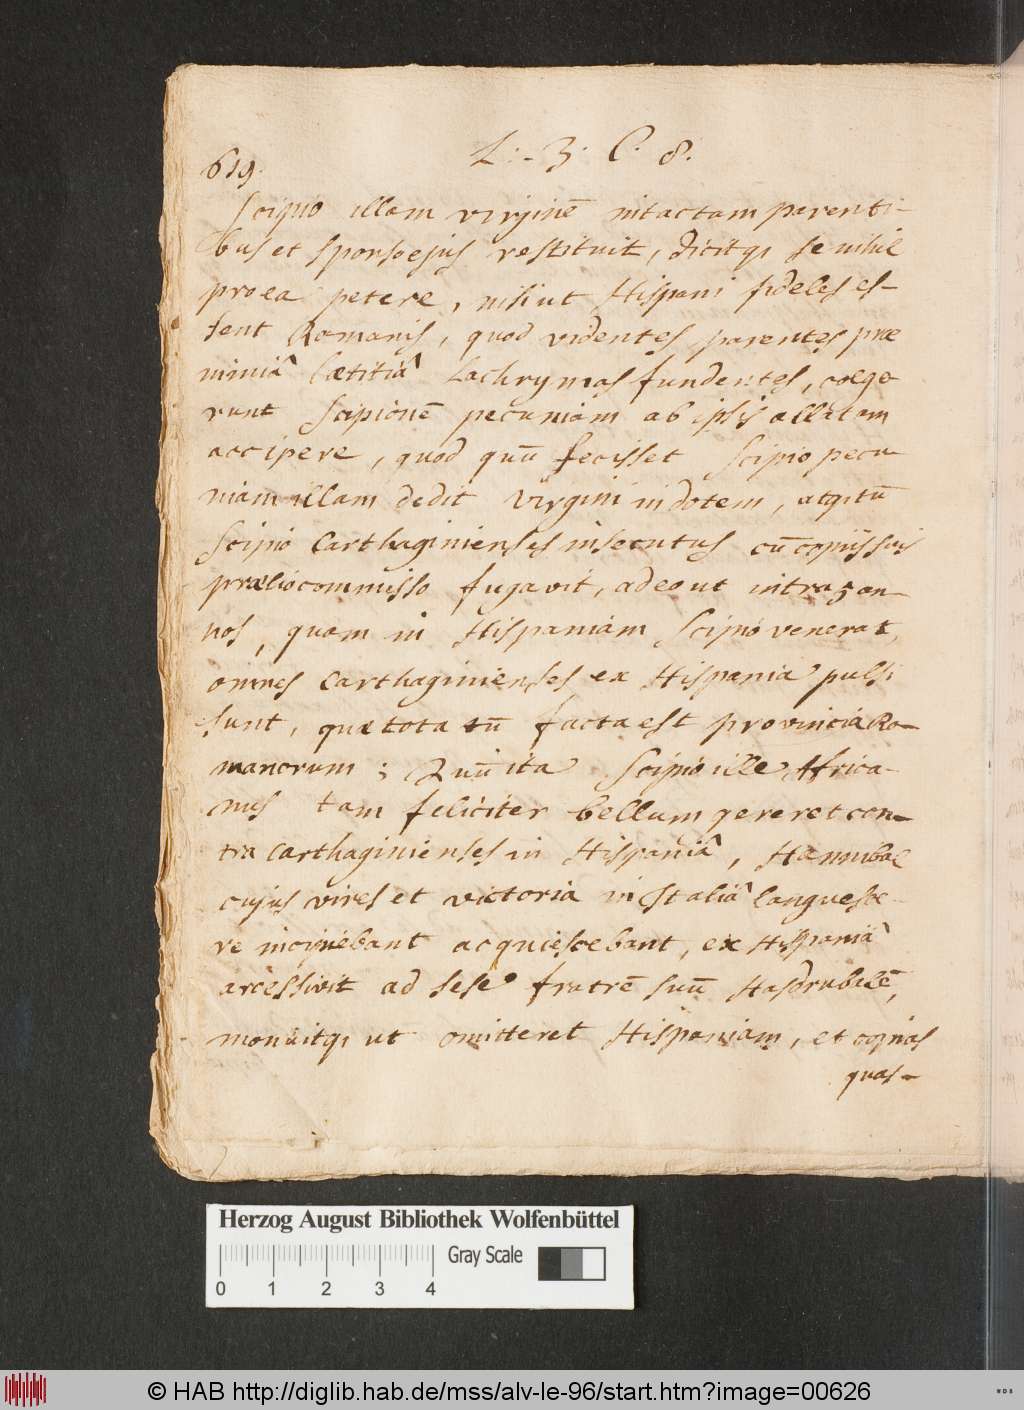 619.
L: 3. C. 8.
Scipio illam virginē intactam parenti-
bus et sponso ejus restituit, dicitqɜ se nihil
pro ea petere, nisi ut Hispani fideles es-
sent Romanis, quod videntes parentes præ
nimiâ lætitiâ Lachrymas fundentes, coege
runt Scipionē pecuniam ab ipsis allatam
accipere, quod quū fecisset Scipio pecu
niam illam dedit virgini in dotem, atqɜ tū
Scipio Carthaginienses insecutus cū copiis suis
prælio commisso fugavit, adeo ut intra 5 an-
nos, quam in Hispaniam Scipio venerat,
omnes Carthaginienses ex Hispania pulsi
sunt, quæ tota tū facta est provincia Ro-
manorum; Quū ita Scipio ille Africa-
nus tam feliciter bellum gereret con-
tra Carthaginienses in Hispaniâ, Hannibal
cujus vires et victoria in Italiâ languesce-
re incipiebant acquiescebant, ex Hispaniâ
arcessivit ad sese fratrē suū Hasdrubalē,
monuitqɜ ut omitteret Hispaniam, et copias
quas-
Herzog August Bibliothek Wolfenbüttel
Gray Scale
0 1 2 3 4
© HAB http://diglib.hab.de/mss/alv-le-96/start.htm?image=00626